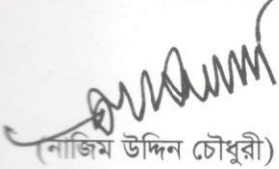 (নাজিম উদ্দিন চৌধুরী)